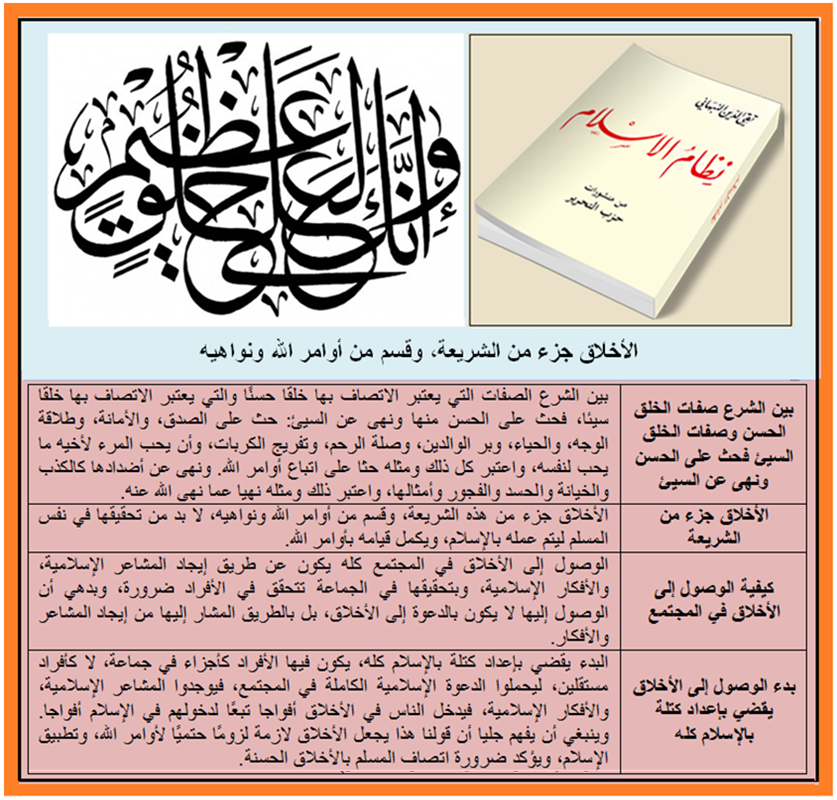 وَإِنَّكَ لَعَلَىٰ خُلُقٍ عَظِيمٍ
تقي الدين النبهاني
نظامُ الإسلام
من منشورات
حزب التحرير
الأخلاق جزء من الشريعة، وقسم من أوامر الله ونواهيه
بين الشرع صفات الخلق
الحسن وصفات الخلق
السيئ فحث على الحسن
ونهى عن السيئ
بين الشرع الصفات التي يعتبر الاتصاف بها خلقًا حسنًا والتي يعتبر الاتصاف بها خلقًا
سيئا، فحث على الحسن منها ونهى عن السيئ: حث على الصدق، والأمانة، وطلاقة
الوجه، والحياء، وبر الوالدين، وصلة الرحم، وتفريج الكربات، وأن يحب المرء لأخيه ما
يحب لنفسه، واعتبر كل ذلك ومثله حثا على اتباع أوامر الله. ونهى عن أضدادها كالكذب
والخيانة والحسد والفجور وأمثالها، واعتبر ذلك ومثله نهيا عما نهى الله عنه.
الأخلاق جزء من
الشريعة
الأخلاق جزء من هذه الشريعة، وقسم من أوامر الله ونواهيه، لا بد من تحقيقها في نفس
المسلم ليتم عمله بالإسلام، ويكمل قيامه بأوامر الله.
كيفية الوصول إلى
الأخلاق في المجتمع
الوصول إلى الأخلاق في المجتمع كله يكون عن طريق إيجاد المشاعر الإسلامية،
والأفكار الإسلامية، وبتحقيقها في الجماعة تتحقق في الأفراد ضرورة، وبدهي أن
الوصول إليها لا يكون بالدعوة إلى الأخلاق، بل بالطريق المشار إليها من إيجاد المشاعر
والأفكار.
بدء الوصول إلى الأخلاق
يقضي بإعداد كتلة
بالإسلام كله
البدء يقضي بإعداد كتلة بالإسلام كله، يكون فيها الأفراد كأجزاء في جماعة، لا كأفراد
مستقلين، ليحملوا الدعوة الإسلامية الكاملة في المجتمع، فيوجدوا المشاعر الإسلامية،
والأفكار الإسلامية، فيدخل الناس في الأخلاق أفواجا تبعًا لدخولهم في الإسلام أفواجا.
وينبغي أن يفهم جليا أن قولنا هذا يجعل الأخلاق لازمة لزومًا حتميًا لأوامر الله، وتطبيق
الإسلام، ويؤكد ضرورة اتصاف المسلم بالأخلاق الحسنة.